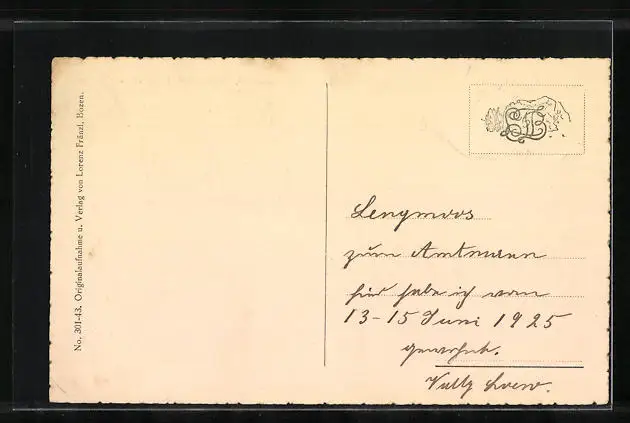 No. 301-43. Originalaufnahme u. Verlag von Lorenz Fränzl, Bozen.
Lengmoos
zum Amtmann
hier habe ich vom
13-15 Juni 1925
gewohnt.